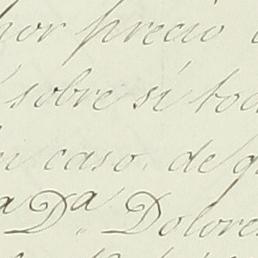 por precio
sobre sí tod
caso de q
a Dª Dolore